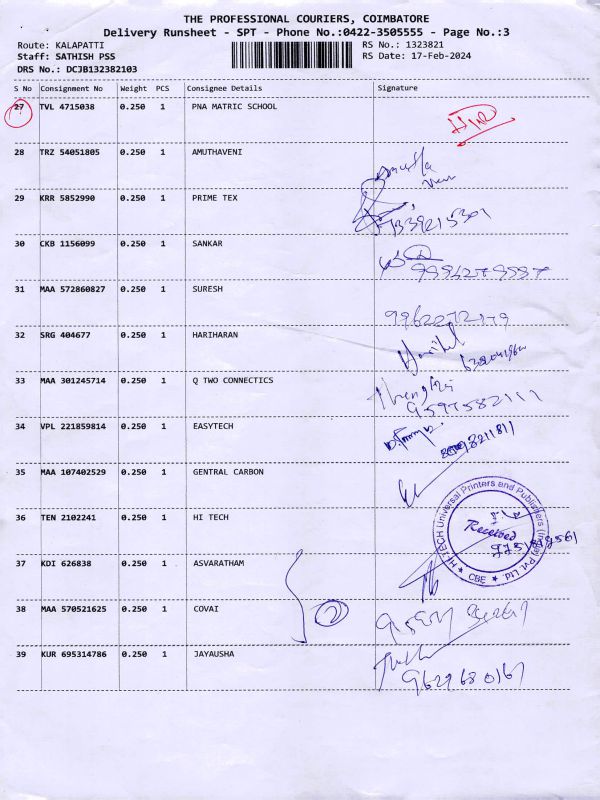 THE PROFESSIONAL COURIERS, COIMBATORE
Delivery Runsheet - SPT - Phone No.:0422-3505555 - Page No.:3
Route: KALAPATTI RS No.: 1323821
Staff: SATHISH PSS RS Date: 17-Feb-2024
DRS No.: DCJB132382103
S No Consignment No Weight PCS Consignee Details Signature
27 TVL 4715038 0.250 1 PNA MATRIC SCHOOL
28 TRZ 54051805 0.250 1 AMUTHAVENI
29 KRR 5852990 0.250 1 PRIME TEX
30 CKB 1156099 0.250 1 SANKAR
31 MAA 572860827 0.250 1 SURESH
9962272179
32 SRG 404677 0.250 1 HARIHARAN
33 MAA 301245714 0.250 1 Q TWO CONNECTICS
9597582111
34 VPL 221859814 0.250 1 EASYTECH
35 MAA 107402529 0.250 1 GENTRAL CARBON
36 TEN 2102241 0.250 1 HI TECH
HI TECH Universal Printers and Publishers (India) Pvt. Ltd.
Received
★ CBE ★
37 KDI 626838 0.250 1 ASVARATHAM
38 MAA 570521625 0.250 1 COVAI
2
39 KUR 695314786 0.250 1 JAYAUSHA
9629680167